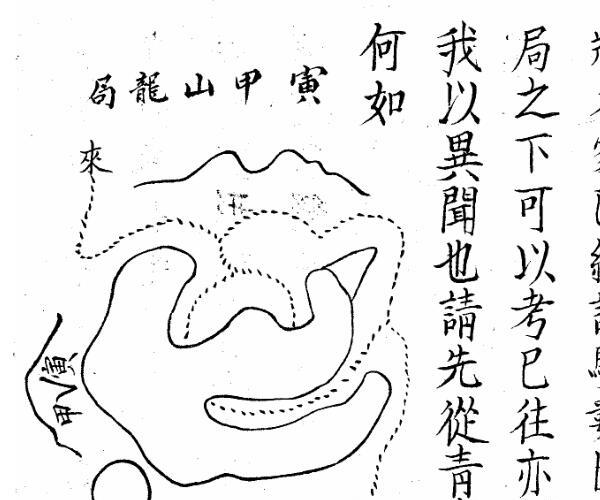 局之下可以考已往亦
我以異聞也請先從青
何如
寅甲山龍局
來
寅
甲